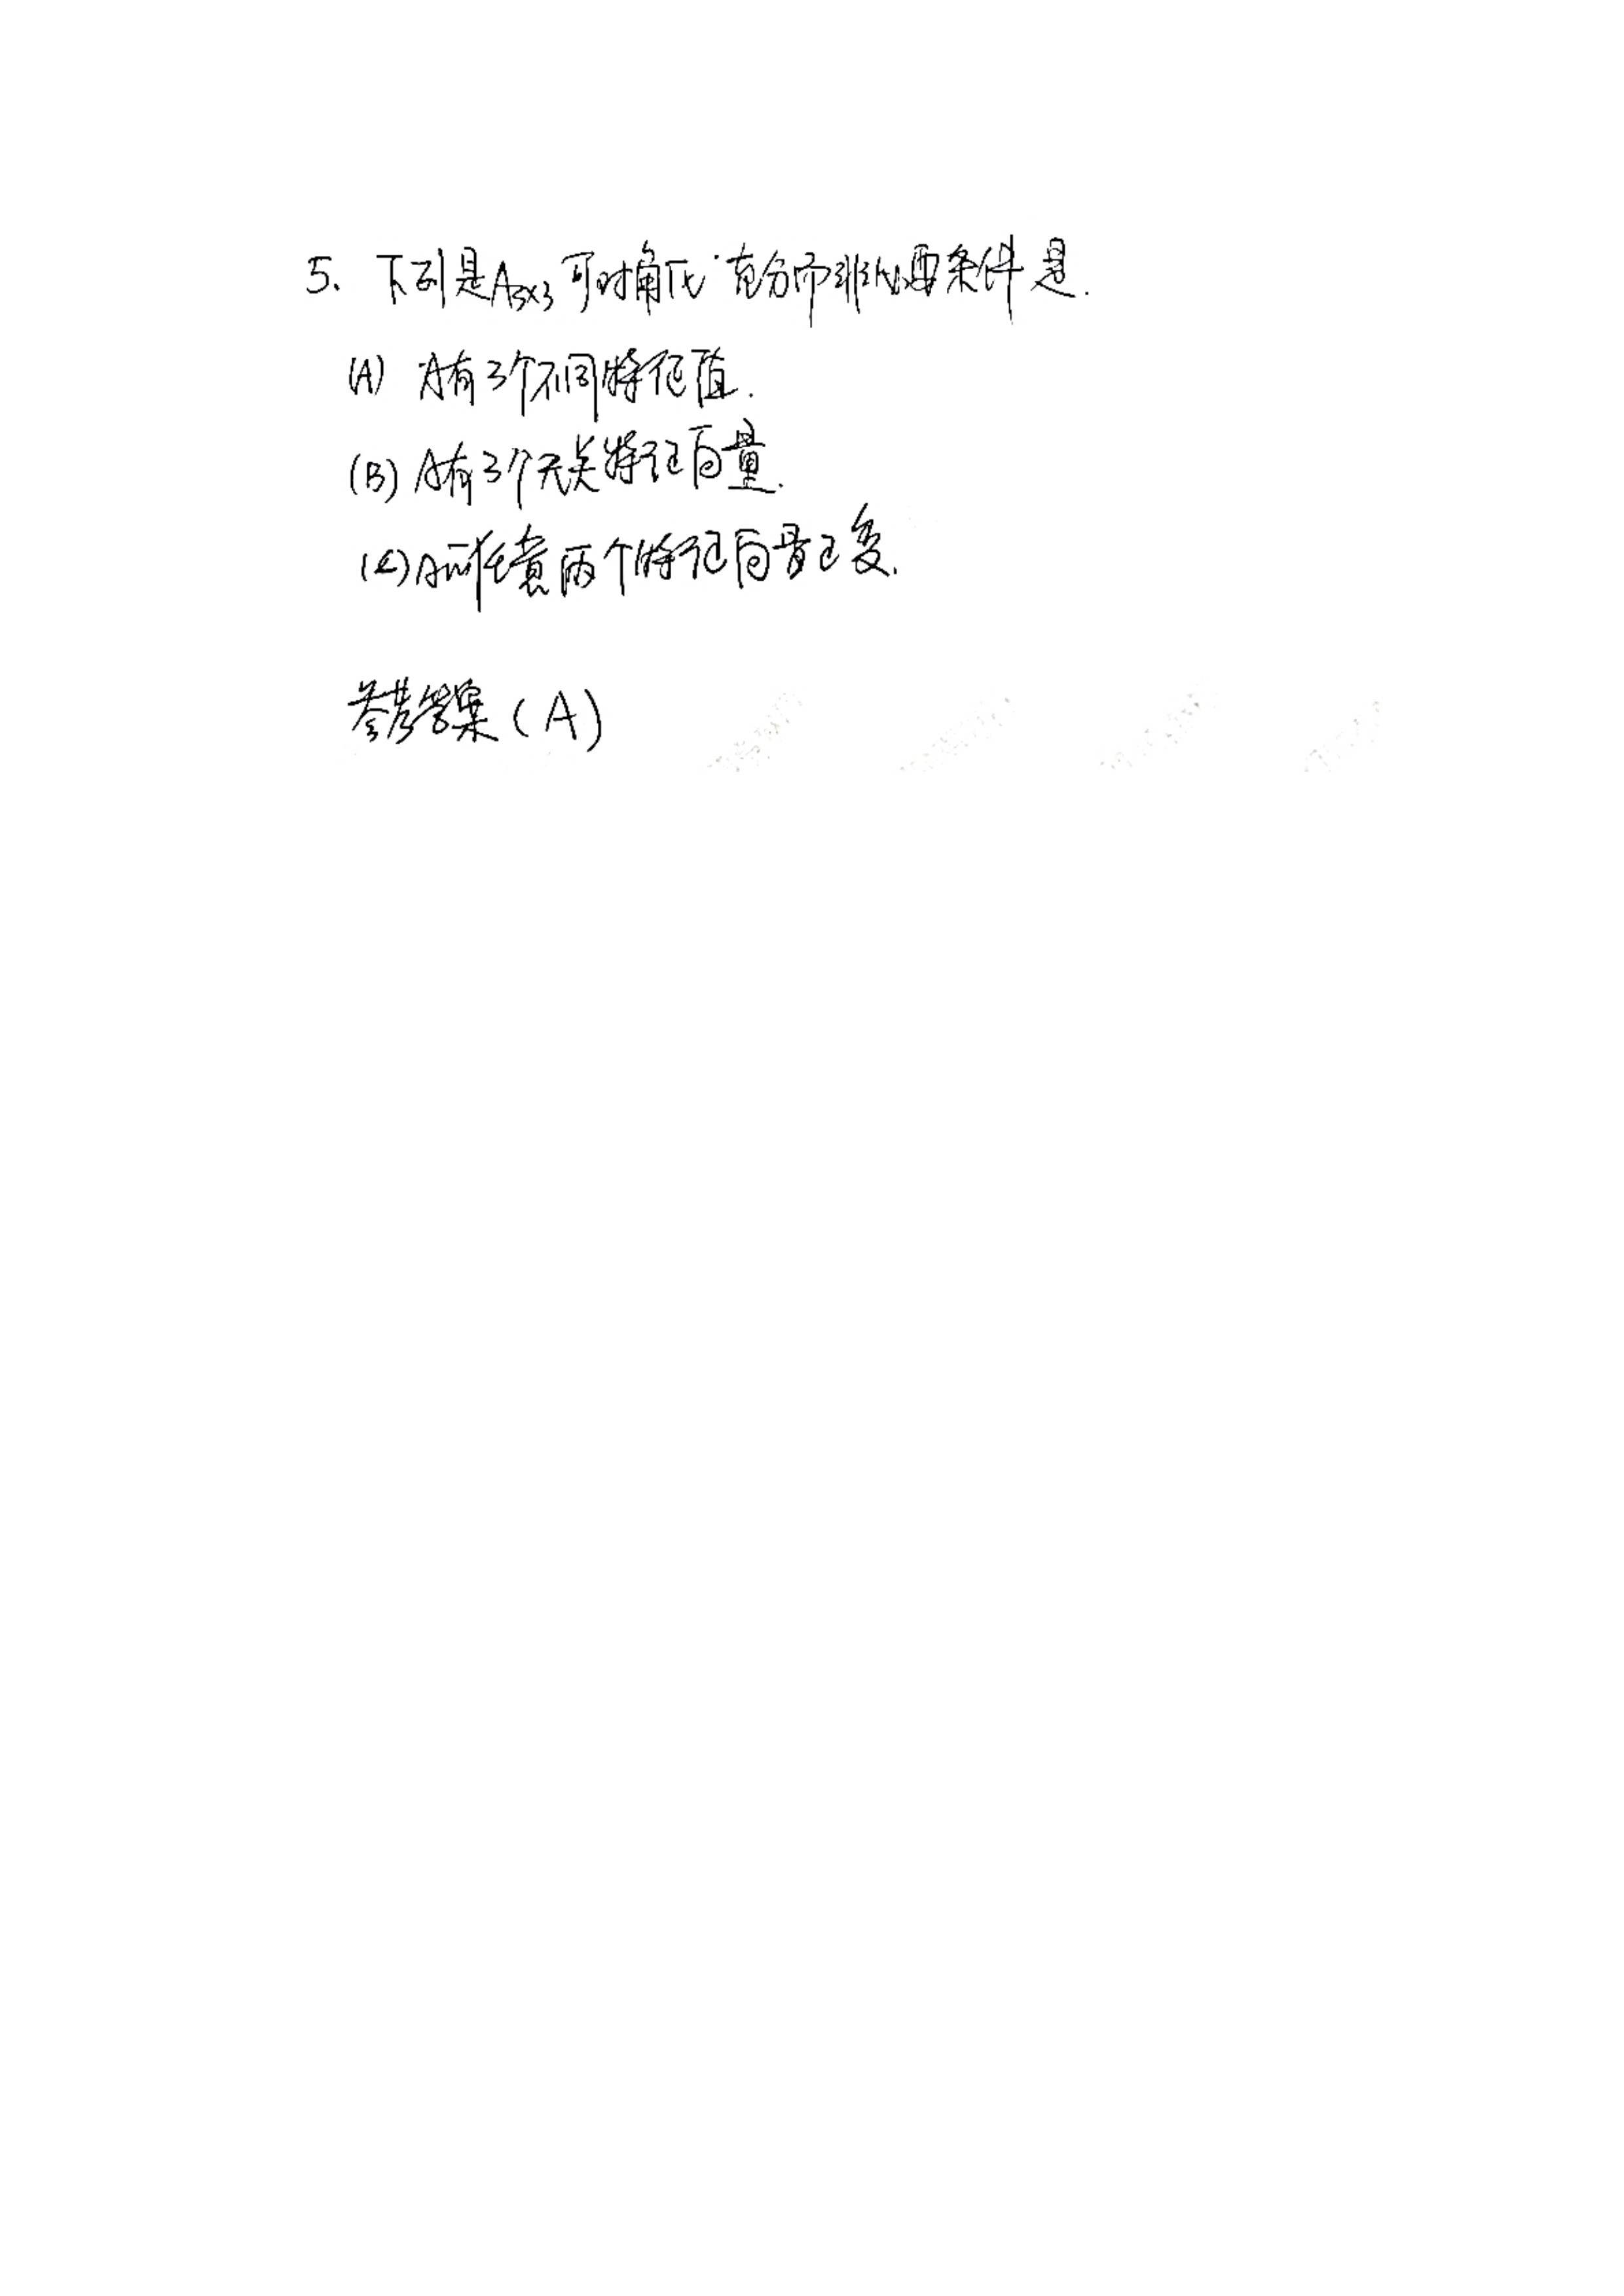 5、下列是A3×3可对角化充分而非必要条件是.
(A) A有3个不同特征值.
(B) A有3个无关特征向量.
(C) A任意两个特征向量正交.
参考答案(A)